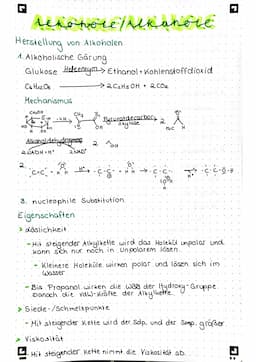 Alkohole/Alkanole
Herstellung von Alkoholen
1. Alkoholische Gärung
Glukose Hefeenzym> Ethanol + Kohlenstoffdioxid
C₆H₁₂O₆ → 2 C₂H₅OH + 2 CO₂
Mechanismus
CH₃
Pyruvatdecarboxylase
OH
H₃C H
Alkoholdehydrogenase
2 NADH+H⁺ 2 NAD⁺
2.
H⁺
3. nucleophile Substitution
Eigenschaften
> Löslichkeit
- Mit steigender Alkylkette wird das Molekül unpolar und
kann sich nur noch in Unpolarem lösen
- Kleinere Moleküle wirken polar und lösen sich im
Wasser
- Bis Propanol wirken die WBB der Hydroxy-Gruppe.
Danach die vdW-Kräfte der Alkylkette.
> Siede-/Schmelzpunkte
- Mit steigender Kette wird der Sdp. und der Smp. größer
> Viskosität
- Mit steigender Kette nimmt die Viskosität ab.